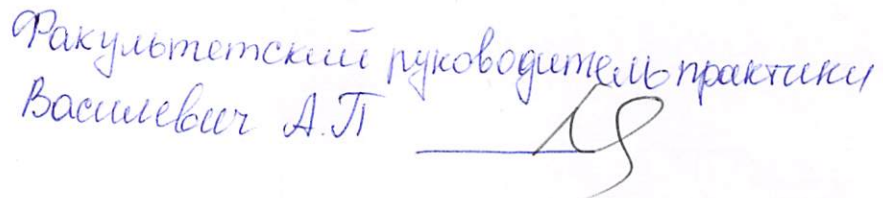 Факультетский руководитель практики
Василевич А.П